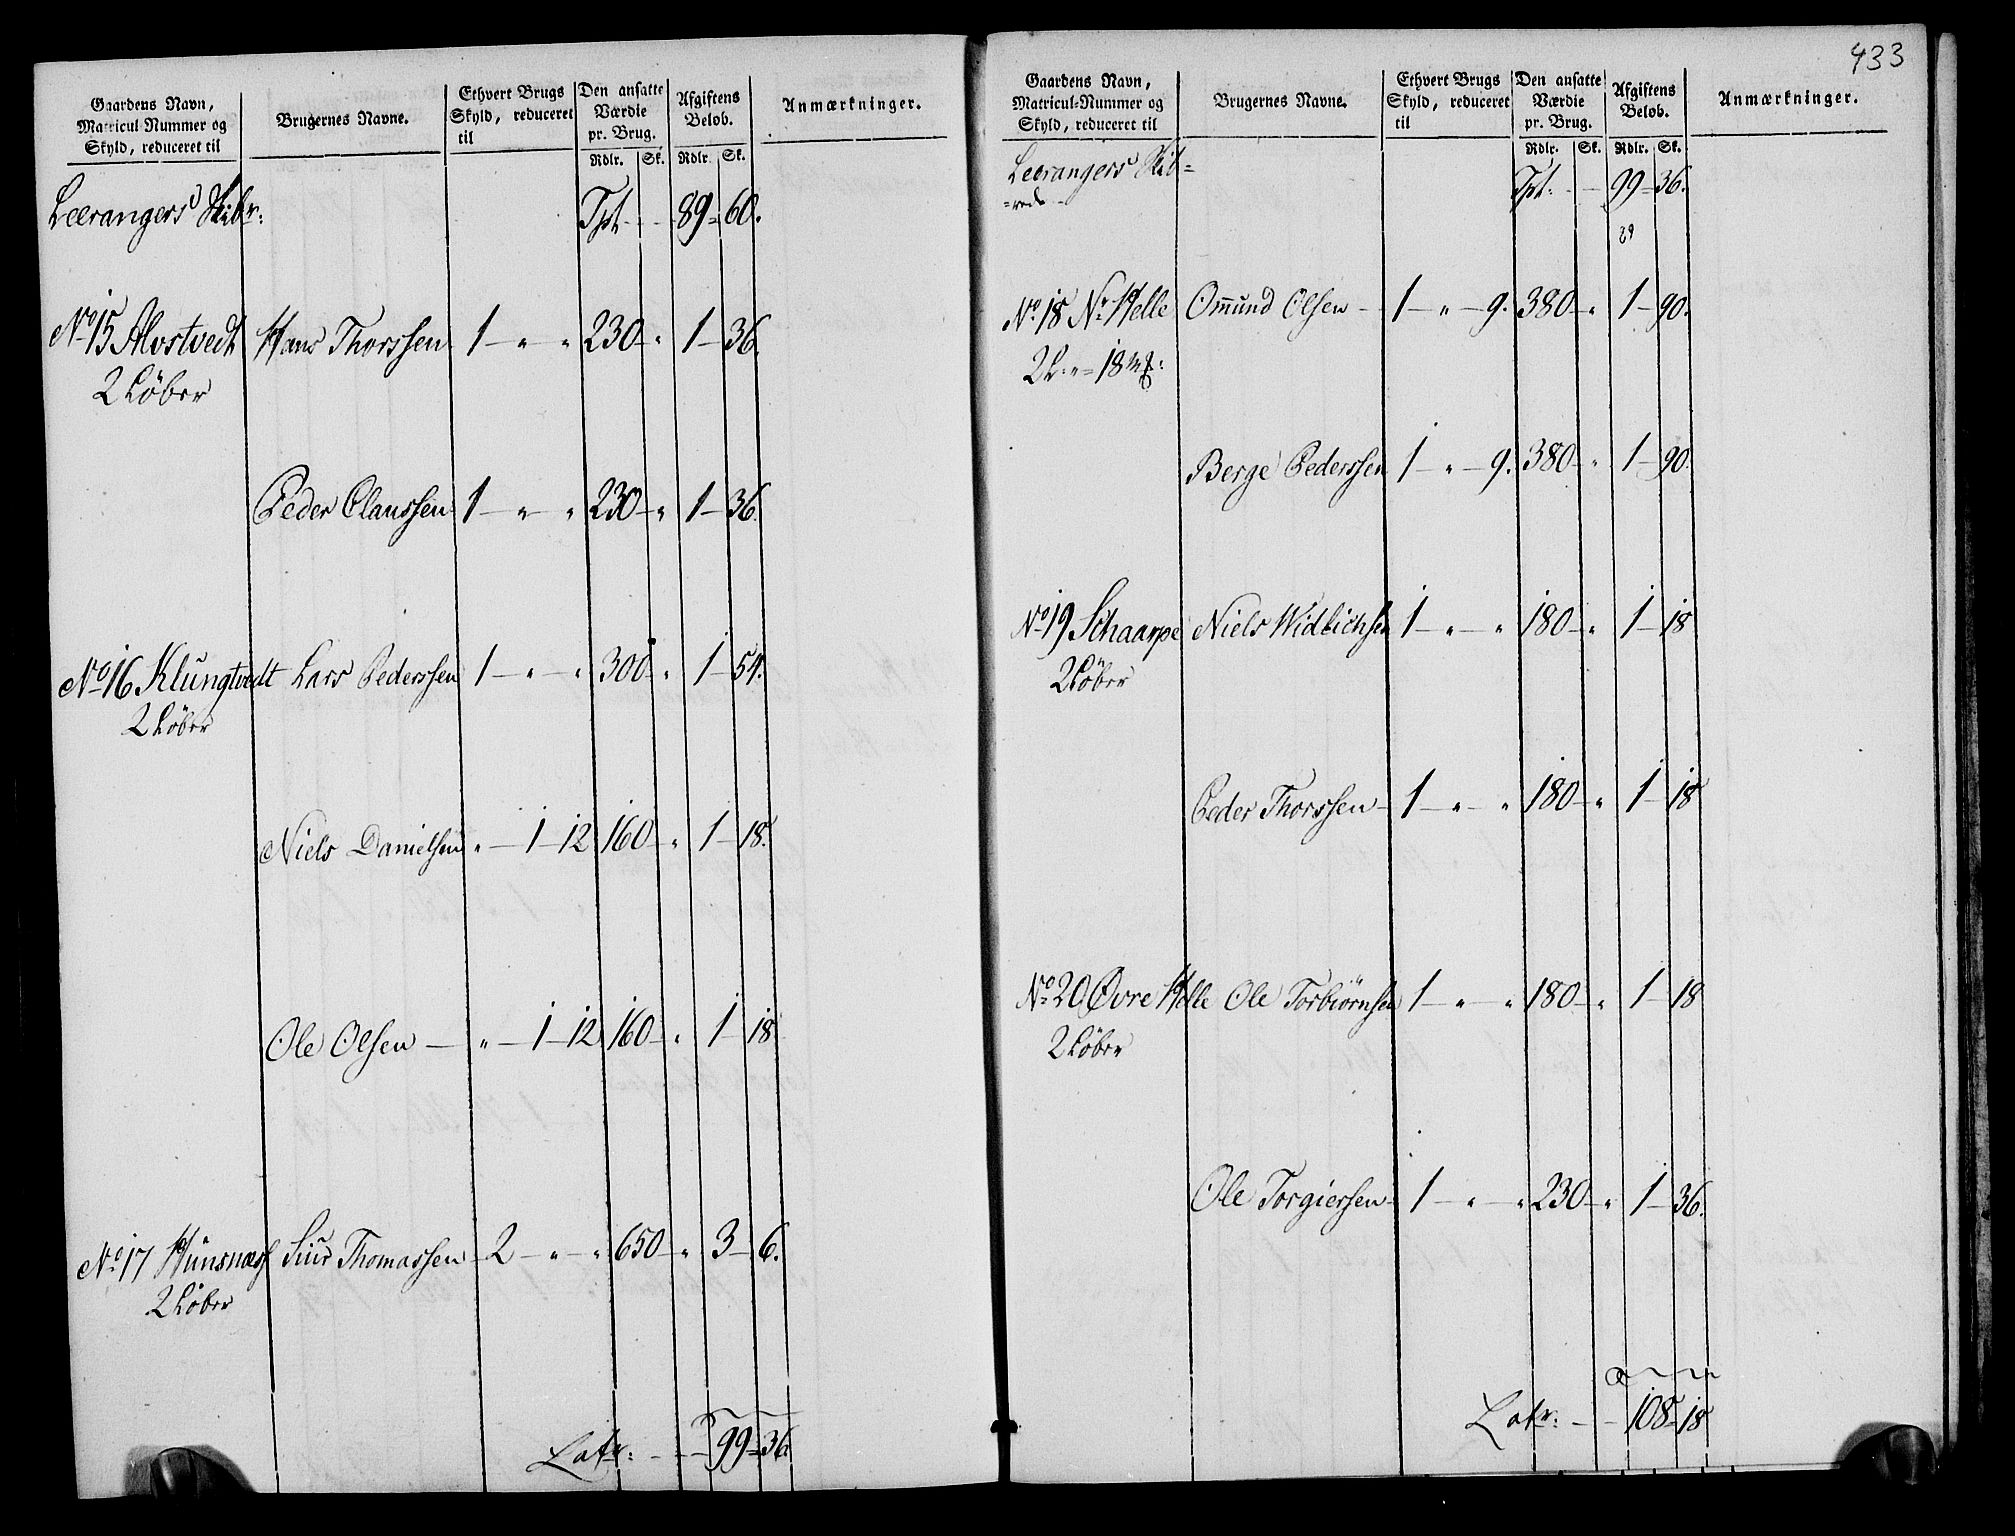 Gaardens Navn,
Matricul-Nummer og
Skyld, reduceret til
Brugernes Navne.
Ethvert Brugs
Skyld, reduceret
til
Den ansatte
Værdie
pr. Brug.
Afgiftens
Beløb.
Anmærkninger.
Rdlr. Sk. Rdlr. Sk.
Leerangers Skibr: Tpt - - 89 = 60.
No 15 Alvstvedt Hans Thorssen 1 - " " 230 - " 1 - 36.
2 Løber
Peder Claussen 1 - " - " 230 - " 1 - 36.
No 16 Klungtvedt Lars Pederssen 1 - " - " 300 - " 1 - 54.
2 Løber
Niels Danielsen " - 1 - 12 160 - " 1 - 18.
Ole Olsen - " - 1 - 12 160 - " 1 - 18
No 17 Hunsnæss Siur Thomassen 2 - " - " 650 - " 3 - 6.
2 Løber
Latr: - - - 99 = 36.
433
Gaardens Navn,
Matricul-Nummer og
Skyld, reduceret til
Brugernes Navne.
Ethvert Brugs
Skyld, reduceret
til
Den ansatte
Værdie
pr. Brug.
Afgiftens
Beløb.
Anmærkninger.
Rdlr. Sk. Rdlr. Sk.
Leerangers Skib=
=rede - Tpt: - - 99 - 36.
No 18 Nr Helle Omund Olsen - 1 - " - 9. 380 - " 1 - 90.
2 L: " = 18 mk:
Berge Pederssen 1 - " - 9. 380 - " 1 - 90.
No 19 Schaarpe Niels Widlichsen 1 - " - " 180 - " 1 - 18
2 Løber
Peder Thorssen - 1 - " - " 180 - " 1 - 18
No 20 Øvre Helle Ole Torbiørnsen 1 - " - " 180 - " 1 - 18
2 Løber
Ole Torgierssen - 1 - " - " 230 - " 1 - 36.
Latr: - - 108 - 18